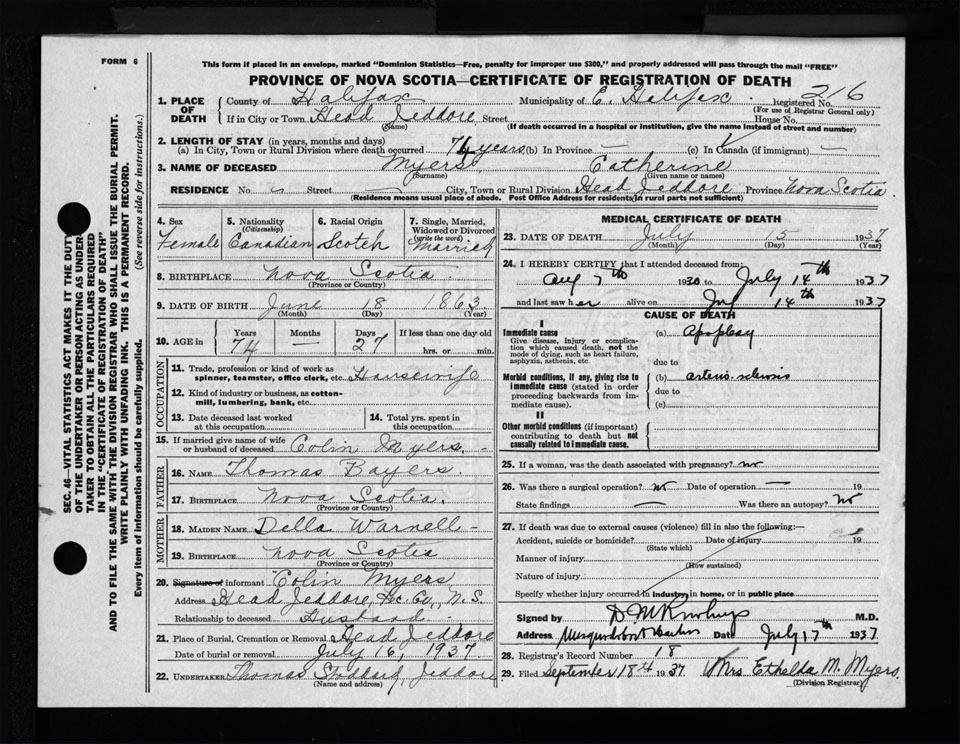 FORM 6
This form if placed in an envelope, marked "Dominion Statistics—Free, penalty for improper use $300," and properly addressed will pass through the mail "FREE"
PROVINCE OF NOVA SCOTIA—CERTIFICATE OF REGISTRATION OF DEATH
1. PLACE OF DEATH County of Halifax Municipality of E. Halifax Registered No. 216
(For use of Registrar General only)
If in City or Town Head Jeddore Street House No.
(Name) (If death occurred in a hospital or institution, give the name instead of street and number)
2. LENGTH OF STAY (in years, months and days)
(a) In City, Town or Rural Division where death occurred 74 years (b) In Province — (c) In Canada (if immigrant) —
3. NAME OF DECEASED Myers Catherine
(Surname) (Given name or names)
RESIDENCE No. Street — City, Town or Rural Division Head Jeddore Province Nova Scotia
(Residence means usual place of abode. Post Office Address for residents in rural parts not sufficient)
SEC. 46—VITAL STATISTICS ACT MAKES IT THE DUTY
OF THE UNDERTAKER OR PERSON ACTING AS UNDER
TAKER TO OBTAIN ALL THE PARTICULARS REQUIRED
IN THE "CERTIFICATE OF REGISTRATION OF DEATH"
AND TO FILE THE SAME WITH THE DIVISION REGISTRAR WHO SHALL ISSUE THE BURIAL PERMIT.
WRITE PLAINLY WITH UNFADING INK. THIS IS A PERMANENT RECORD.
Every item of information should be carefully supplied. (See reverse side for instructions.)
4. Sex 5. Nationality 6. Racial Origin 7. Single, Married,
(Citizenship) Widowed or Divorced
(write the word)
Female Canadian Scotch Married
8. BIRTHPLACE Nova Scotia
(Province or Country)
9. DATE OF BIRTH June 18 1863
(Month) (Day) (Year)
10. AGE in Years Months Days If less than one day old
74 — 27 hrs. or min.
11. Trade, profession or kind of work as
spinner, teamster, office clerk, etc. Housewife
12. Kind of industry or business, as cotton-
mill, lumbering, bank, etc.
13. Date deceased last worked at this occupation 14. Total yrs. spent in this occupation
15. If married give name of wife
or husband of deceased Colin Myers. -
FATHER
16. NAME Thomas Bayers.
17. BIRTHPLACE Nova Scotia.
(Province or Country)
MOTHER
18. MAIDEN NAME Della Warnell -
19. BIRTHPLACE Nova Scotia
(Province or Country)
20. Signature of informant Colin Myers
Address Head Jeddore, Hx. Co., N.S.
Relationship to deceased Husband
21. Place of Burial, Cremation or Removal Head Jeddore
Date of burial or removal July 16 1937.
22. UNDERTAKER Thomas Jeddore
(Name and address)
MEDICAL CERTIFICATE OF DEATH
23. DATE OF DEATH July 15 1937
(Month) (Day) (Year)
24. I HEREBY CERTIFY that I attended deceased from:
Aug 7th 1930 to July 14th 1937
and last saw her alive on 14th 1937
CAUSE OF DEATH
I
Immediate cause
Give disease, injury or complica-
tion which caused death, not the
mode of dying, such as heart failure,
asphyxia, asthenia, etc.
(a) Apoplexy
due to
Morbid conditions, if any, giving rise to
immediate cause (stated in order
proceeding backwards from im-
mediate cause).
(b)
due to
(c)
II
Other morbid conditions (if important)
contributing to death but not
causally related to immediate cause.
25. If a woman, was the death associated with pregnancy? no
26. Was there a surgical operation? No Date of operation — 19
State findings — Was there an autopsy? No
27. If death was due to external causes (violence) fill in also the following:—
Accident, suicide or homicide? Date of injury 19
(State which)
Manner of injury
(How sustained)
Nature of injury
Specify whether injury occurred in industry, in home, or in public place
Signed by M.D.
Address Musquodoboit Harbor Date July 17th 1937
28. Registrar's Record Number 18
29. Filed September 18th 1937 Mrs Ethelda M. Myers.
(Division Registrar)